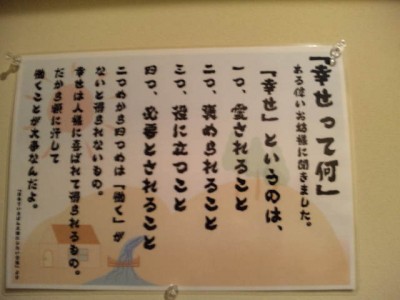 『幸せって何』
ある偉いお坊様に聞きました。
『幸せ』というのは、
一つ、愛されること
二つ、褒められること
三つ、役に立つこと
四つ、必要とされること
二つめから四つめは「働く」が
ないと得られないもの。
幸せは人様に喜ばれて得られるもの。
だから額に汗して
働くことが大事なんだよ。